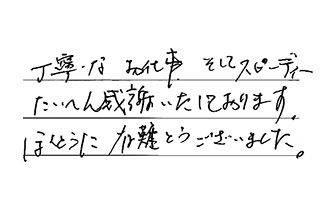 丁寧な お仕事 そしてスピーディー
たいへん感謝いたしております。
ほんとうに 有難とうございました。